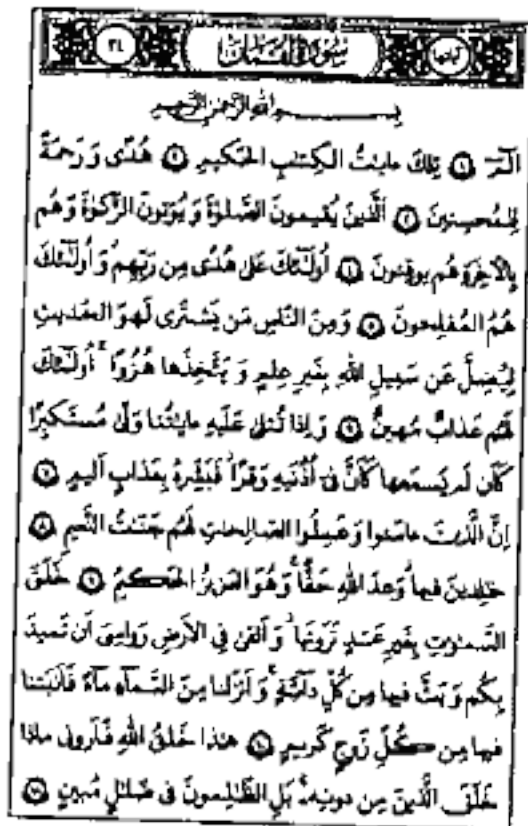 آياتها سُورَةُ لُقمَان ٣٤
بِسـمِ اللهِ الرَّحمٰنِ الرَّحيمِ
الٓمٓ ﴿١﴾ تِلكَ ءايٰتُ الكِتٰبِ الحَكيمِ ﴿٢﴾ هُدًى وَ رَحمَةً
لِلمُحسِنينَ ﴿٣﴾ اَلَّذينَ يُقيمونَ الصَّلوٰةَ وَ يُؤتونَ الزَّكوٰةَ وَ هُم
بِالأخِرَةِ هُم يوقِنونَ ﴿٤﴾ اُولٰٓئِكَ عَلىٰ هُدًى مِن رَبِّهِم وَ اُولٰٓئِكَ
هُمُ المُفلِحونَ ﴿٥﴾ وَ مِنَ النّاسِ مَن يَشتَرى لَهوَ الحَديثِ
لِيُضِلَّ عَن سَبيلِ اللهِ بِغَيرِ عِلمٍ وَ يَتَّخِذَها هُزُوًا ۚ اُولٰٓئِكَ
لَهُم عَذابٌ مُهينٌ ﴿٦﴾ وَ اِذا تُتلىٰ عَلَيهِ ءايٰتُنا وَلّىٰ مُستَكبِرًا
كَأَن لَم يَسمَعها كَأَنَّ فى اُذُنَيهِ وَقرًا ۖ فَبَشِّرهُ بِعَذابٍ اَليمٍ ﴿٧﴾
اِنَّ الَّذينَ ءامَنوا وَ عَمِلُوا الصّالِحاتِ لَهُم جَنّٰتُ النَّعيمِ ﴿٨﴾
خٰلِدينَ فيها ۖ وَعدَ اللهِ حَقًّا ۚ وَ هُوَ العَزيزُ الحَكيمُ ﴿٩﴾ خَلَقَ
السَّمٰوٰتِ بِغَيرِ عَمَدٍ تَرَونَها ۖ وَ اَلقىٰ فِى الاَرضِ رَواسِىَ اَن تَميدَ
بِكُم وَ بَثَّ فيها مِن كُلِّ دآبَّةٍ ۚ وَ اَنزَلنا مِنَ السَّمآءِ مآءً فَاَنبَتنا
فيها مِن كُلِّ زَوجٍ كَريمٍ ﴿١٠﴾ هٰذا خَلقُ اللهِ فَاَرونى ماذا
خَلَقَ الَّذينَ مِن دونِهِ ۚ بَلِ الظّٰلِمونَ فى ضَلٰلٍ مُبينٍ ﴿١١﴾